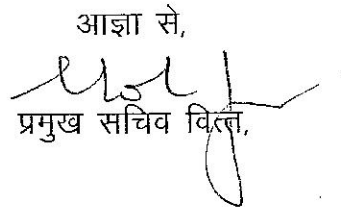 आज्ञा से,
प्रमुख सचिव वित्त,